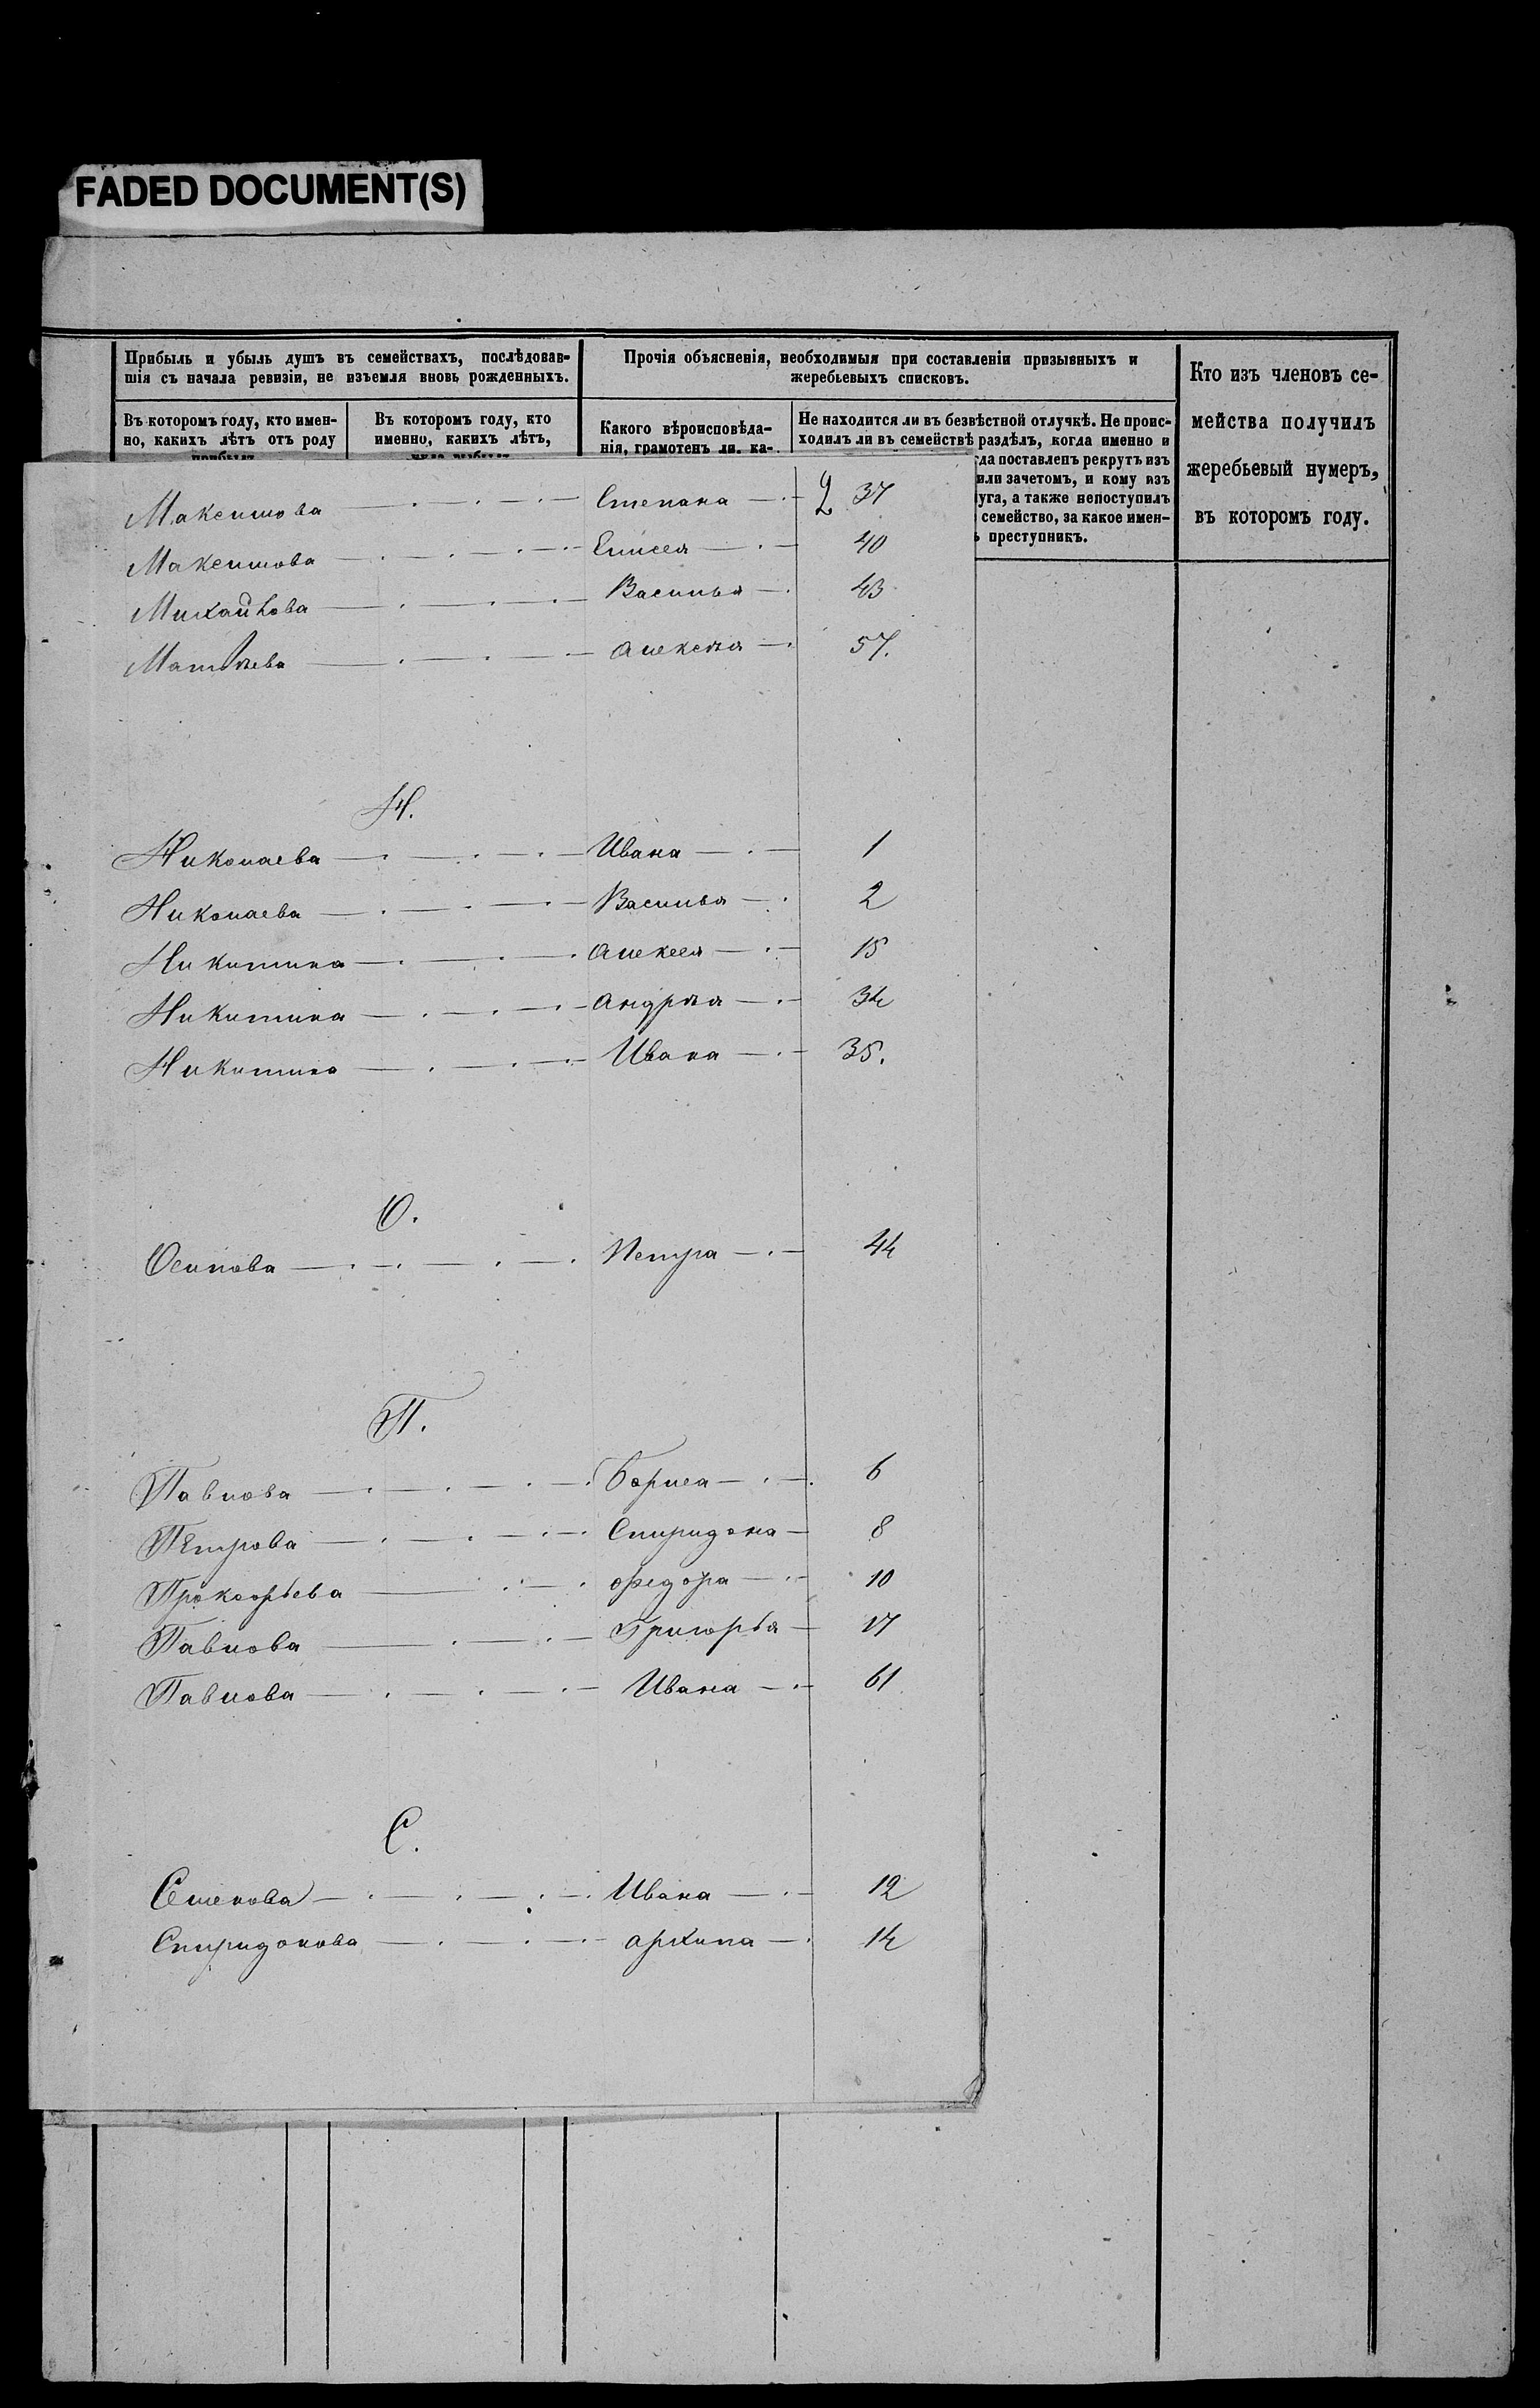 FADED DOCUMENT(S)
Прибыль и убыль душъ въ семействахъ, послѣдовав-
шія съ начала ревизіи, не изъемля вновь рожденныхъ.
Прочія объясненія, необходимыя при составленіи призывныхъ и
жеребьевыхъ списковъ.
Кто изъ членовъ се-
мейства получилъ
жеребьевый нумеръ,
въ которомъ году.
Въ которомъ году, кто имен-
но, какихъ лѣтъ отъ роду
Въ которомъ году, кто
именно, какихъ лѣтъ,
Какого вѣроисповѣда-
нія, грамотенъ ли, ка-
Не находится ли въ безвѣстной отлучкѣ. Не проис-
ходилъ ли въ семействѣ раздѣлъ, когда именно и
гда поставленъ рекрутъ изъ
или зачетомъ, и кому изъ
уга, а также непоступилъ
семейство, за какое имен-
ъ преступникъ.
Максимова Степана 37
Максимова Елисея 40
Михайлова Василья 43
Матвѣева Алексѣя 57.
Н.
Николаева Ивана 1
Николаева Василья 2
Никитина Алексея 15
Никитина Андрѣя 34
Никитина Ивана 35.
О.
Осипова Петра 44
П.
Павлова Бориса 6
Петрова Спиридона 8
Прокофьева Федора 10
Павлова Григорья 17
Павлова Ивана 61
С.
Семенова Ивана 12
Спиридонова Архипа 14